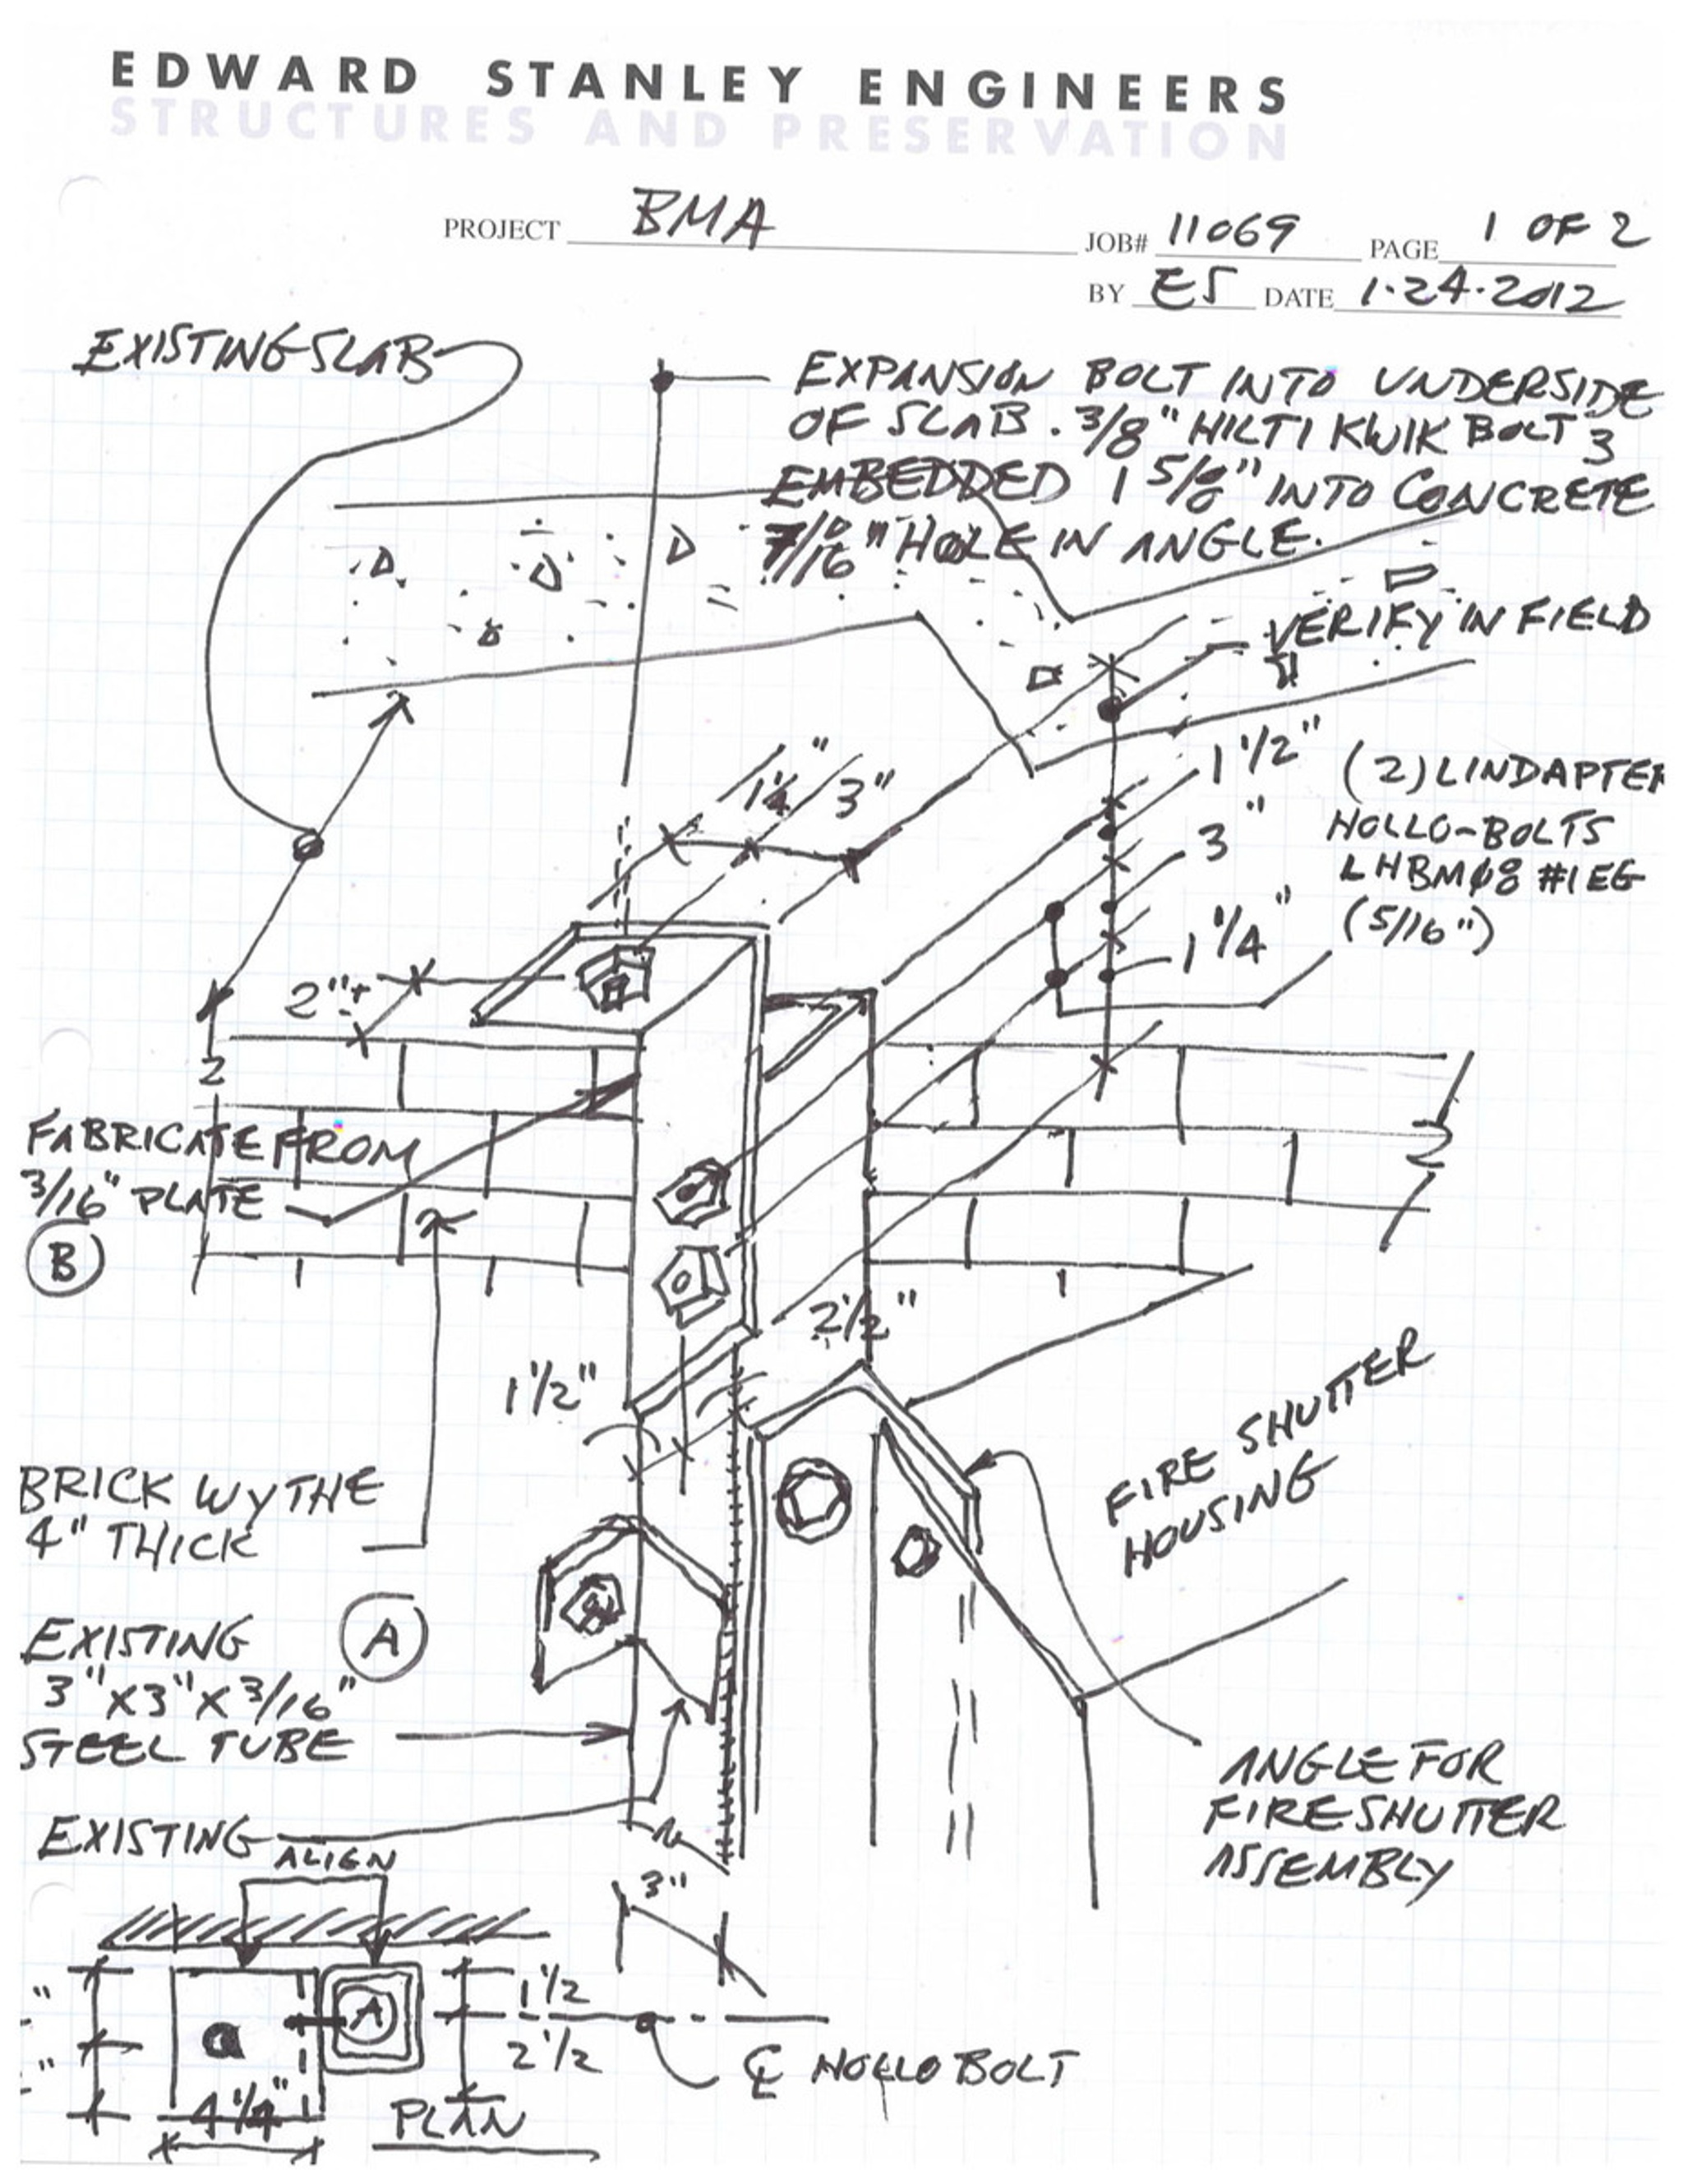 EDWARD STANLEY ENGINEERS
STRUCTURES AND PRESERVATION
PROJECT BMA
JOB# 11069 PAGE 1 OF 2
BY ES DATE 1-24-2012
EXISTING SLAB
EXPANSION BOLT INTO UNDERSIDE
OF SLAB. 3/8" HILTI KWIK BOLT 3
EMBEDDED 1 5/8" INTO CONCRETE
7/16" HOLE IN ANGLE.
VERIFY IN FIELD
1 1/4" 3"
1 1/2"
3"
1 1/4"
(2) LINDAPTER
HOLLO-BOLTS
LHBM08 #1 EG
(5/16")
2"±
FABRICATE FROM
3/16" PLATE
B
2 1/2"
1 1/2"
BRICK WYTHE
4" THICK
FIRE SHUTTER
HOUSING
EXISTING
3"X3"X3/16"
STEEL TUBE
A
ANGLE FOR
FIRE SHUTTER
ASSEMBLY
EXISTING
ALIGN
3"
A
1 1/2
2 1/2
℄ HOLLO BOLT
4 1/4"
PLAN